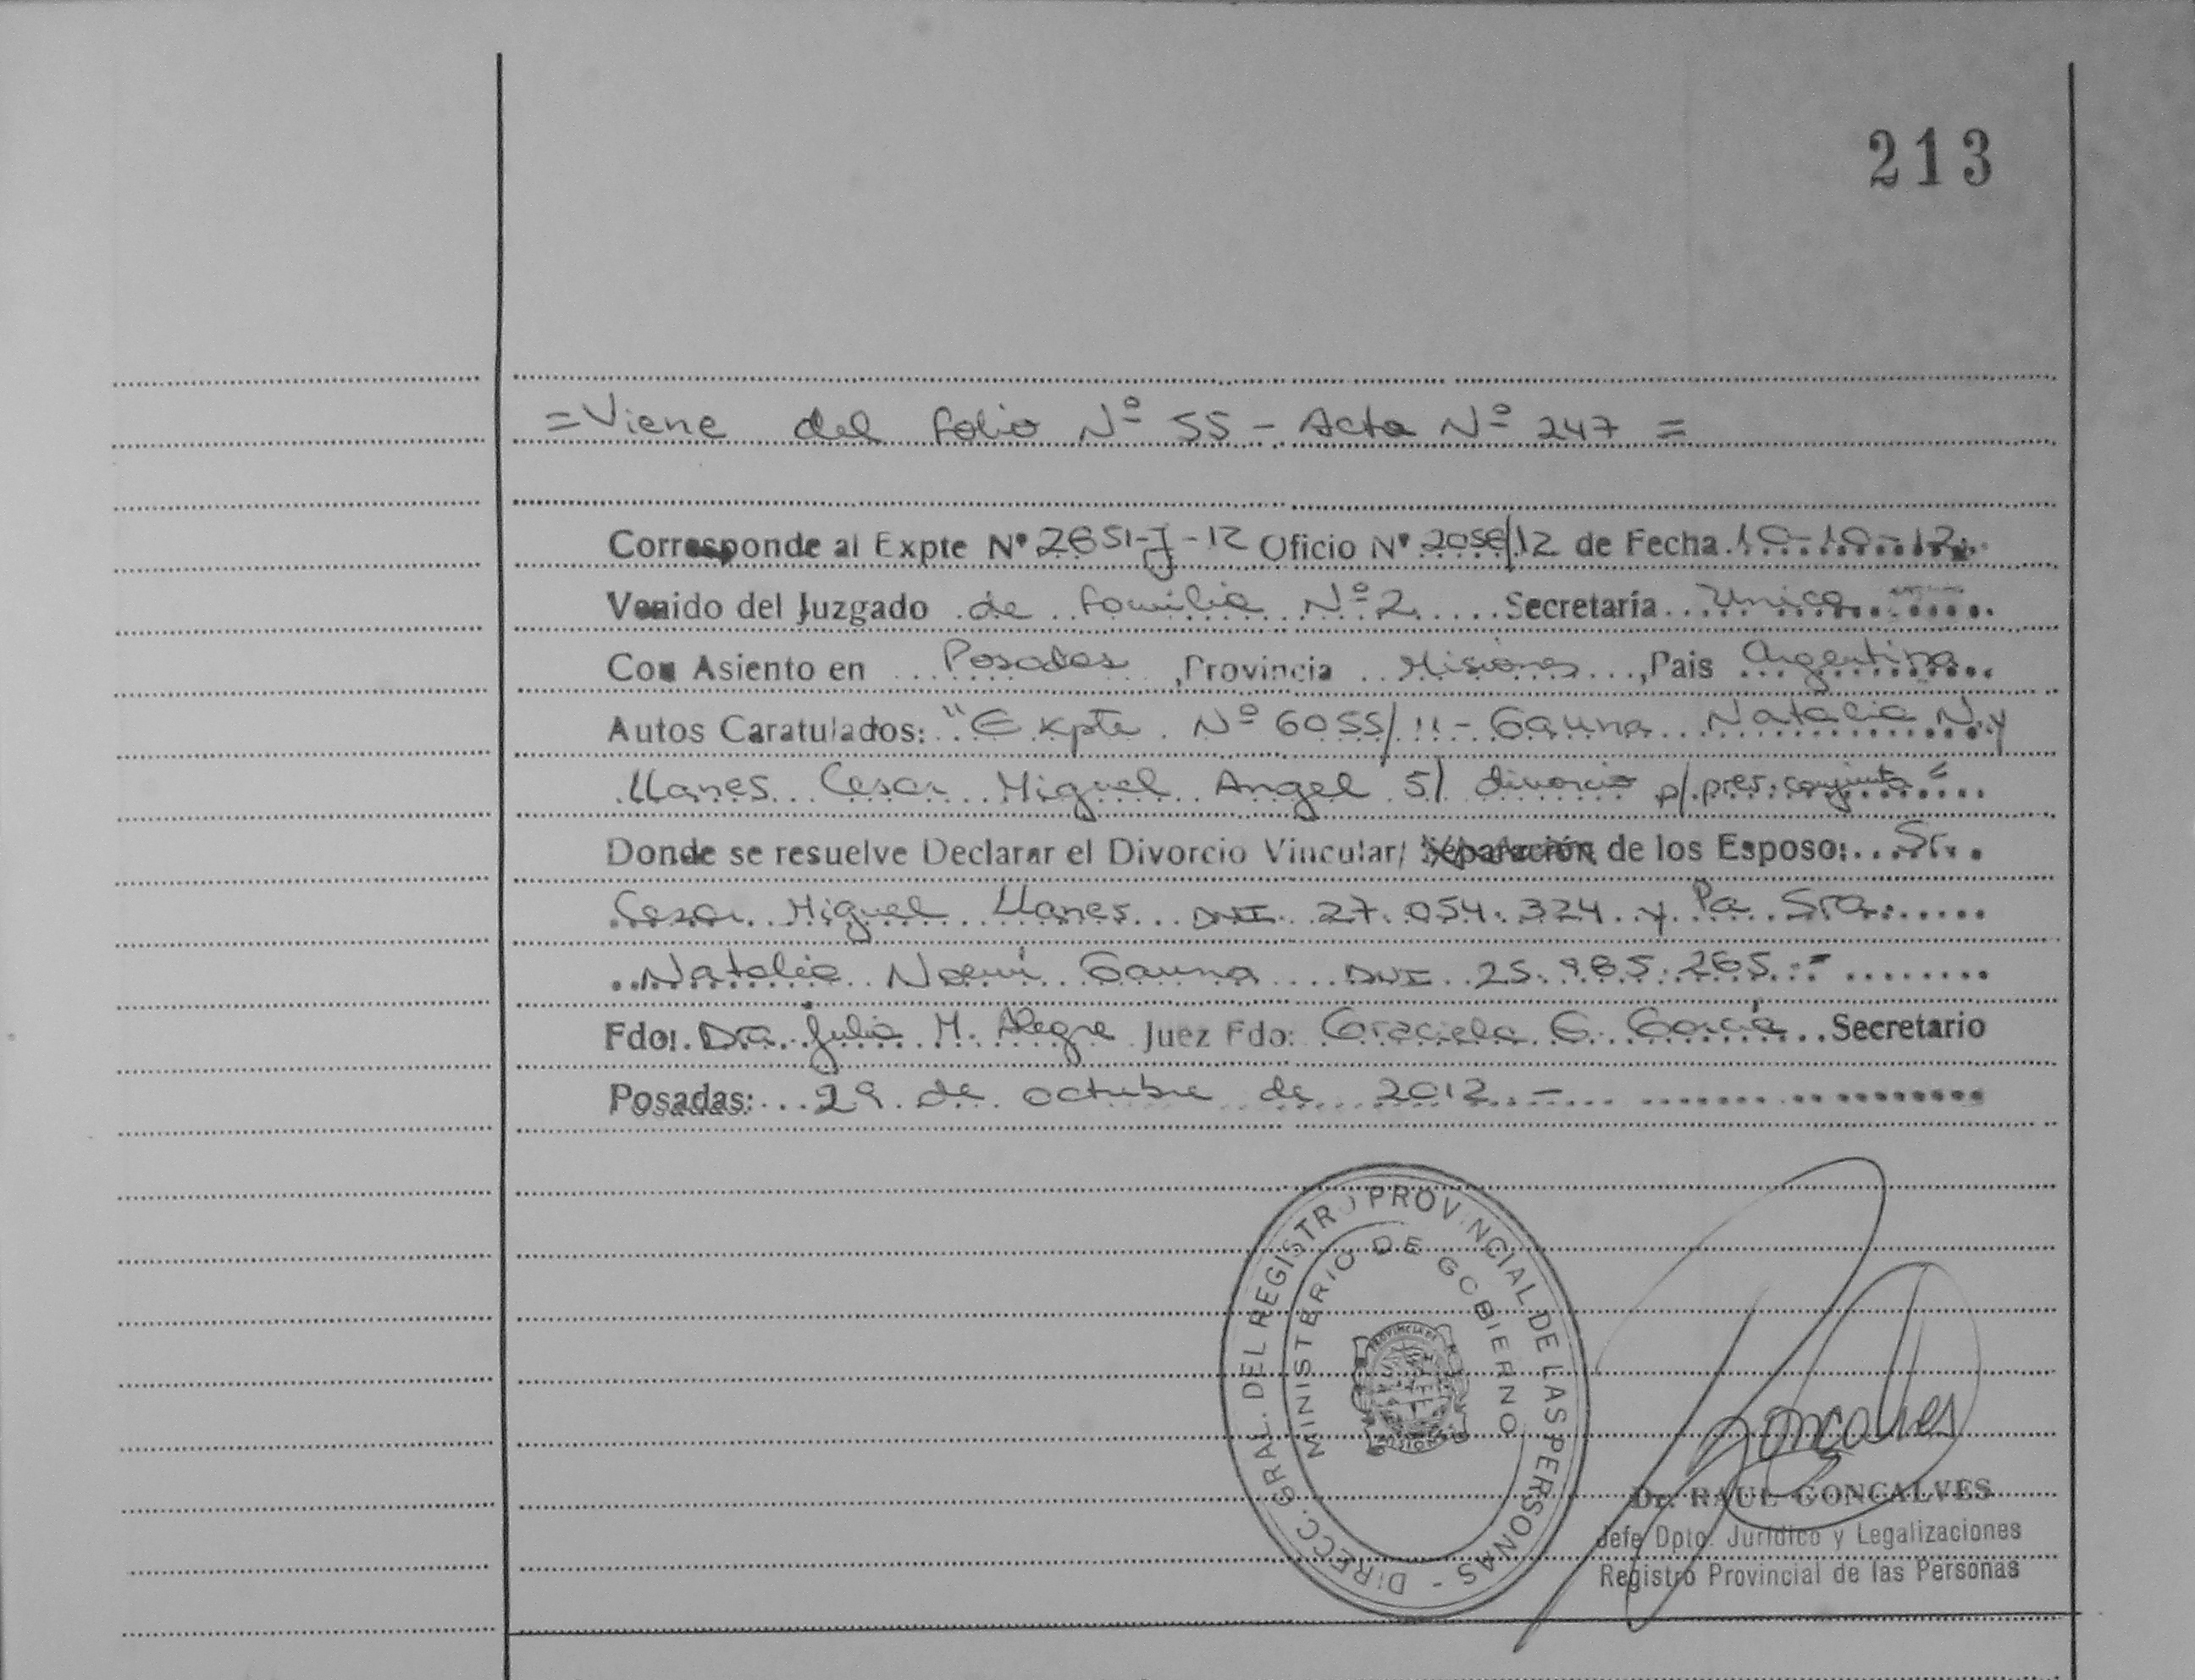 213
=Viene del folio Nº 55 - Acta Nº 247 =
Corresponde al Expte Nº 2651-J-12 Oficio Nº 2056/12 de Fecha 10-10-12.
Venido del Juzgado de familia Nº 2 Secretaría Unica
Con Asiento en Posadas, Provincia Misiones, Pais Argentina
Autos Caratulados: "Expte. Nº 6055/11 - Gauna Natalia N. y
Llanes Cesar Miguel Angel S/ divorcio p/. pres. conjunta"
Donde se resuelve Declarar el Divorcio Vincular/ Separación de los Esposo: Sr.
Cesar Miguel Llanes DNI 27.054.324 y la Sra.
Natalia Noemí Gauna DNI 25.985.265.-
Fdo: Dra. Julia M. Alegre Juez Fdo: Graciela G. García Secretario
Posadas: 29 de octubre de 2012.-
DIRECC. GRAL. DEL REGISTRO PROVINCIAL DE LAS PERSONAS -
MINISTERIO DE GOBIERNO
PROVINCIA DE
MISIONES
Goncalves
Dr. RAUL GONCALVES
Jefe Dpto. Jurídico y Legalizaciones
Registro Provincial de las Personas